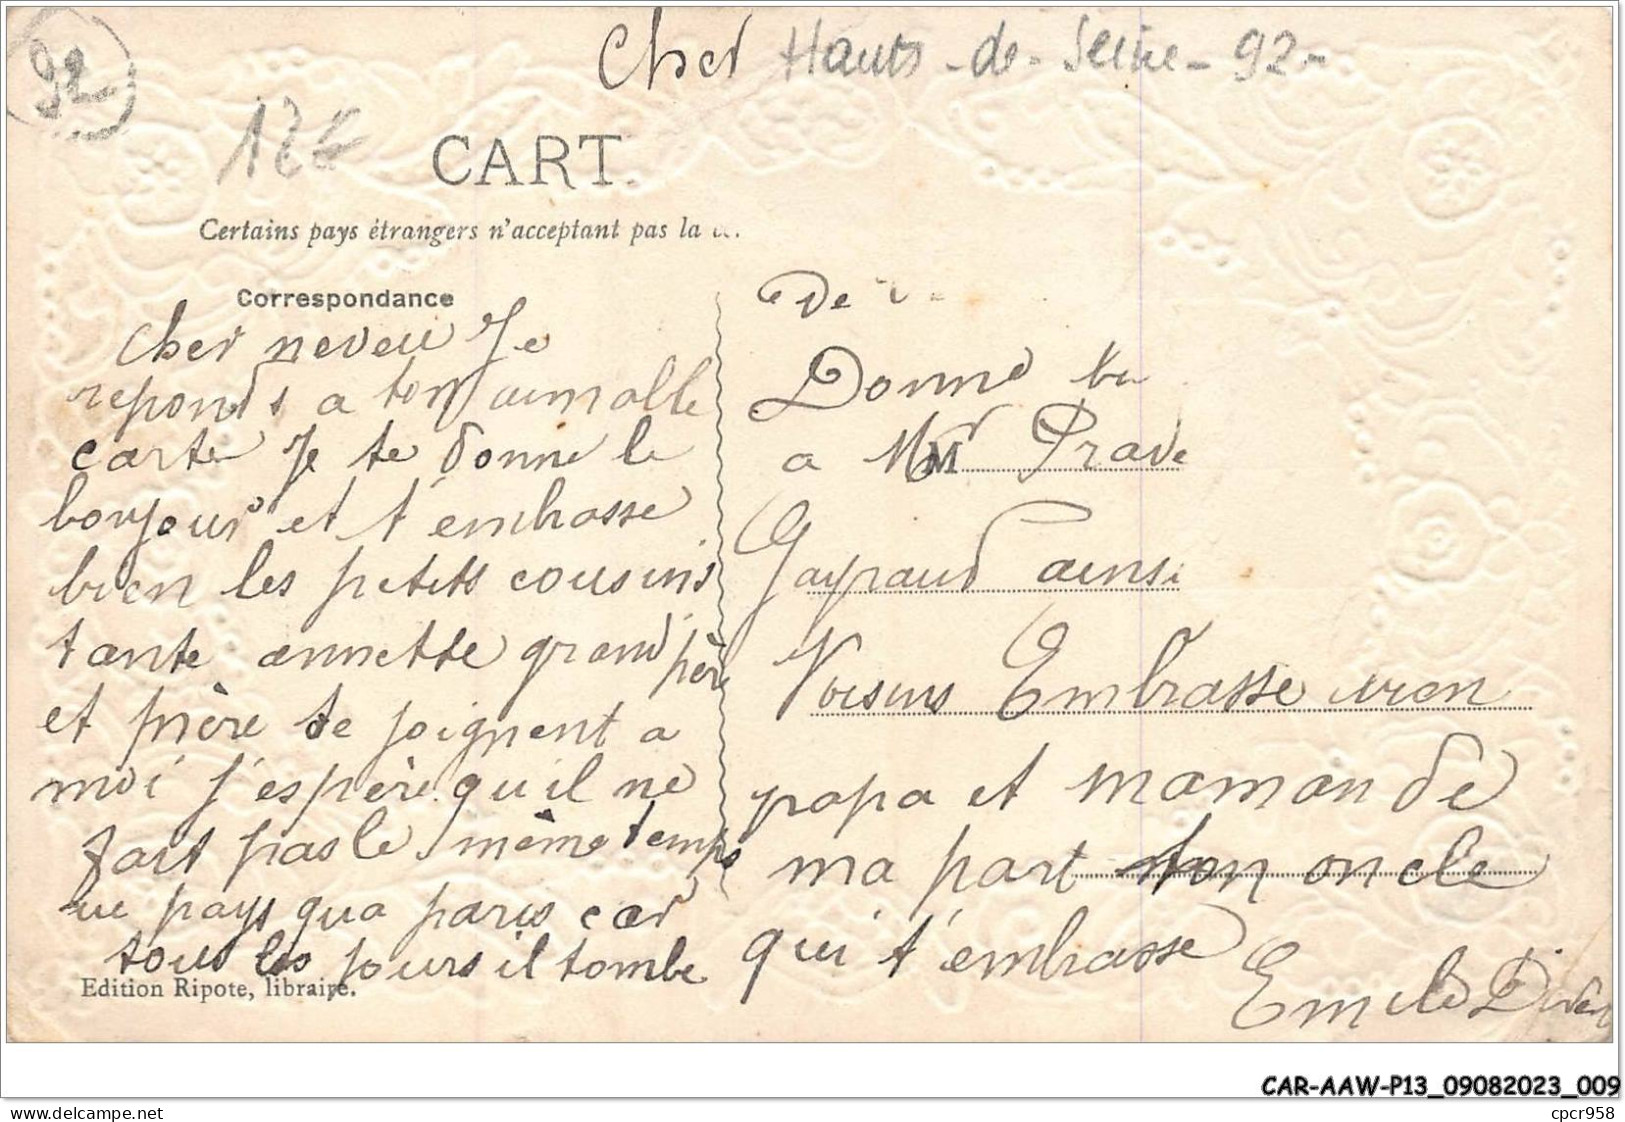 92
Cher Hauts-de-Seine-92-
12€
CART
Certains pays étrangers n'acceptant pas la
Correspondance
Cher neveu Je
reponds a ton aimablle
carte Je te donne le
bonjour et t'embrasse
bien les petits cousins
tante annette grand père
et prière se joignent a
moi j'espère qu'il ne
fait pas le même temps
au pays qua paris car
tous les jours il tombe
Edition Ripote, libraire.
De
Donne
a Mr M Prade
Gayraud ainsi
Voisins Embrasse bien
papa et maman de
ma part ton oncle
qui t'embrasse
Emile
CAR-AAW-P13_09082023_009
www.delcampe.net
cpcr958